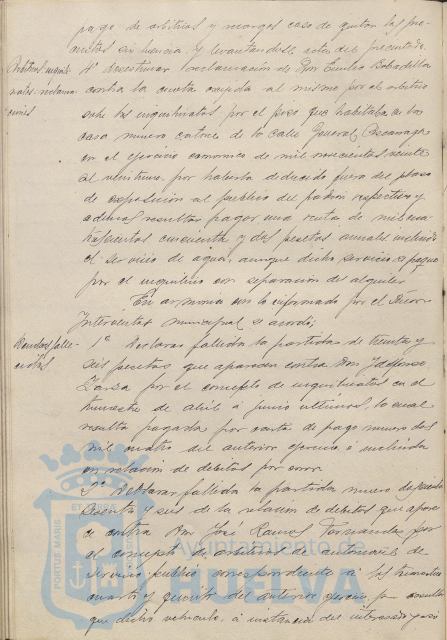 pago de arbitrios y recargos caso de quitar los pre-
cintos sin licencia y levantandose actas del precintado.
Arbitrios munici-
4º desestimar reclamación de Don Emilio Bobadilla
nales: reclama-
contra la cuota exigida al mismo por el arbitrio
ciones
sobre los inquilinatos por el piso que habitaba en la
casa numero catorce de la calle General Azcarraga
en el ejercicio economico de mil novecientos veinte
al veintiuno, por haberla deducido fuera del plazo
de exposición al publico del padron respectivo y
ademas resultar pagar una renta de mil
trescientas cincuenta y dos pesetas anuales incluido
el servicio de agua, aunque dicho servicio se pague
por el inquilino con separación del alquiler
En armonia con lo informado por el Señor
Interventor municipal se acordó;
Deudores falle-
1º Declarar fallida la partida de treinta y
cidos
seis pesetas que aparecen contra Don Ildefonso
Garza por el concepto de inquilinatos en el
trimestre de abril a junio ultimos, lo cual
resulta pagada por carta de pago numero dos
mil cuatro del anterior ejercicio é incluida
en relación de debitos por error
2º Declarar fallida la partida numero
sesenta y seis de la relación de debitos que apare-
ce contra Don José Ramos Fernandez por
el concepto de arbitrio de automovil de
servicio publico correspondiente a los trimestres
cuarto y quinto del anterior ejercicio,
que dicho vehiculo, á instancia del interesado
PORTUS MARIS
Ayuntamiento de
HUELVA